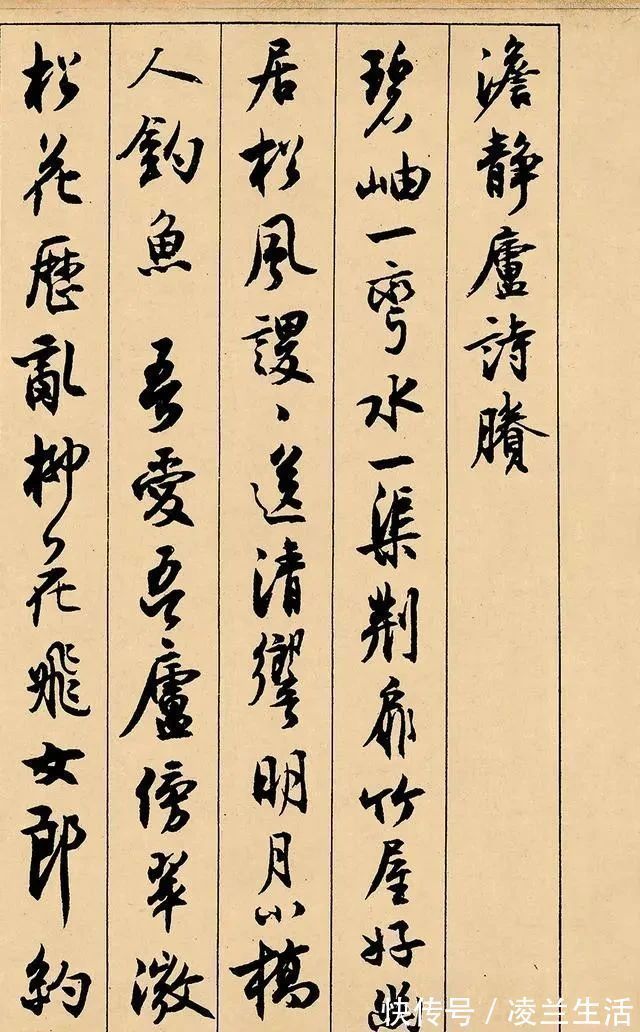 澹靜廬詩賸
碧岫一彎水一渠荆扉竹屋好幽
居松風謖〻送清響明月小橋
人釣魚 吾愛吾廬傍翠微
松花歷亂柳花飛女郎約
快传号 / 凌兰生活